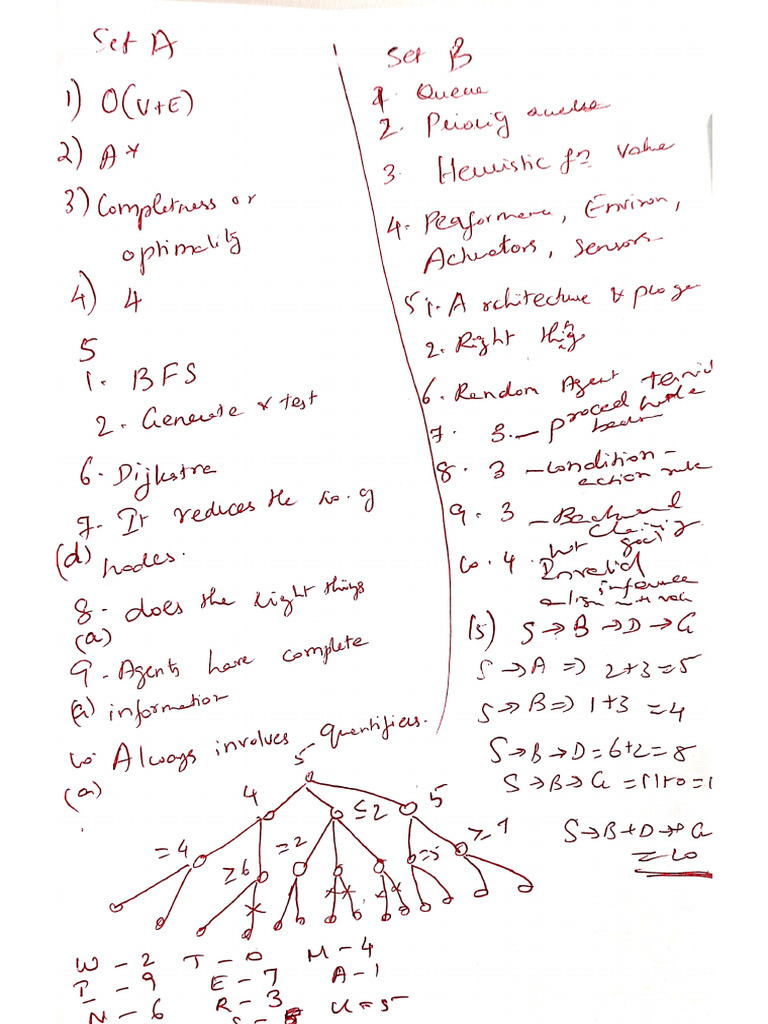 Set A
1) O(V+E)
2) A*
3) Completness or
optimality
4) 4
5
1. BFS
2. Generate & test
6. Dijkstra
7. It reduces the no. of
(d) nodes.
8. does the right things
(a)
9. Agents have complete
(a) information
10. Always involves quantifiers.
(a)
Set B
1. Queue
2. Priority queue
3. Heuristic fn value
4. Performance, Environ,
Actuators, Sensors
5 1. A rchitecture &
2. Right thing
6. Random Agent
7. 3. —
8. 3 – condition –
action rule
9. 3 – Backward
chaining
10. 4. not goal
Invalid
inference
(5) S→B→D→G
S→A ⇒ 2+3=5
S→B ⇒ 1+3 =4
S→B→D=6+2=8
S→B→G =11+0=1
S→B→D→G
=10
5
4 ≤2 5
=4 ≥6 =2 =5 ≥7
W – 2 T – 0 M – 4
I – 9 E – 7 A – 1
N – 6 R – 3 U = 5
S –